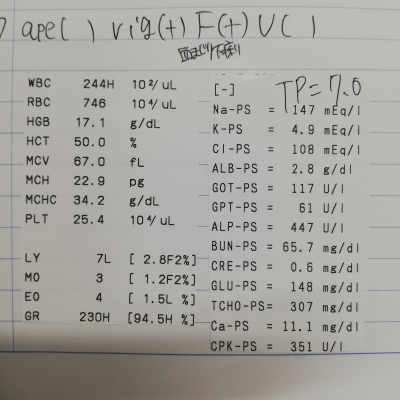 ape( ) vig(+) F(+) U( )
WBC 244H 10²/uL
RBC 746 10⁴/uL
HGB 17.1 g/dL
HCT 50.0 %
MCV 67.0 fL
MCH 22.9 pg
MCHC 34.2 g/dL
PLT 25.4 10⁴/uL
LY 7L [ 2.8F2%]
MO 3 [ 1.2F2%]
EO 4 [ 1.5L %]
GR 230H [94.5H %]
[-] TP=7.0
Na-PS = 147 mEq/l
K-PS = 4.9 mEq/l
Cl-PS = 108 mEq/l
ALB-PS = 2.8 g/dl
GOT-PS = 117 U/l
GPT-PS = 61 U/l
ALP-PS = 447 U/l
BUN-PS = 65.7 mg/dl
CRE-PS = 0.6 mg/dl
GLU-PS = 148 mg/dl
TCHO-PS= 307 mg/dl
Ca-PS = 11.1 mg/dl
CPK-PS = 351 U/l